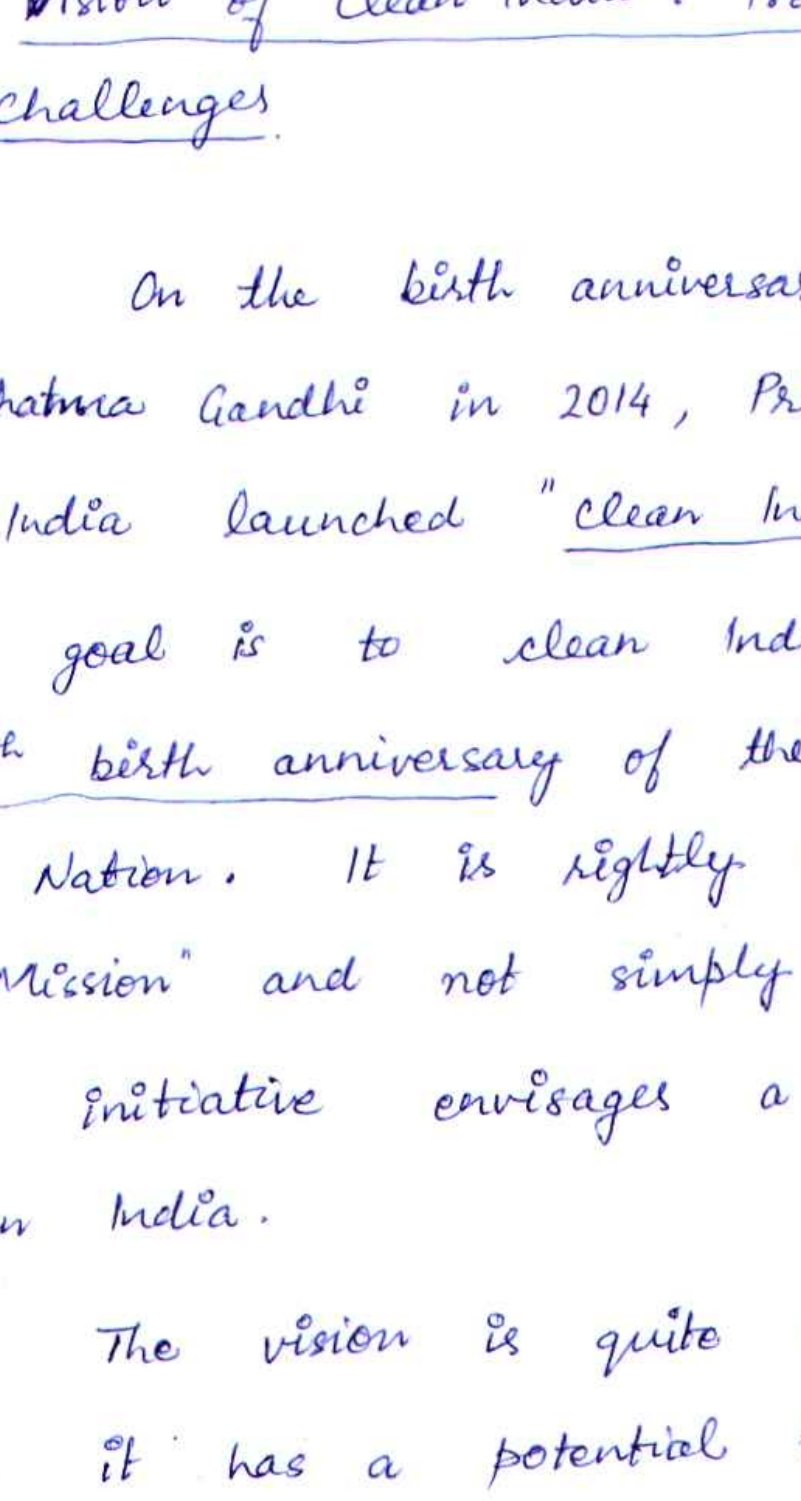 Vision of Clean India :
Challenges.
On the birth anniversar
hatma Gandhi in 2014, Pr
India launched "Clean In
goal is to clean Ind
h birth anniversary of the
Nation. It is rightly
Mission" and not simply
initiative envisages a
n India.
The vision is quite
it has a potential